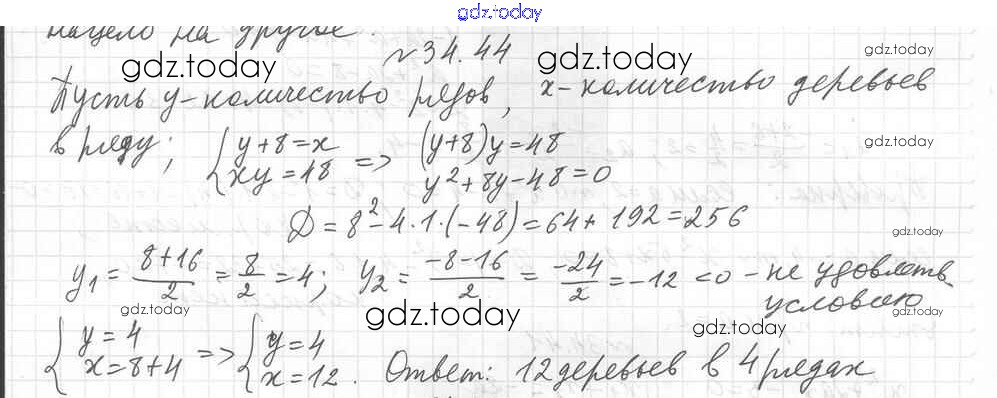 gdz.today
нацело на другое.
№ 34.44
gdz.today
gdz.today
Пусть y - количество рядов, x - количество деревьев
в ряду; { y + 8 = x xy = 48 => (y + 8)y = 48 y² + 8y - 48 = 0
gdz.today
D = 8² - 4 · 1 · (-48) = 64 + 192 = 256
gdz.today
y₁ = 8 + 16 / 2 = 8 / 2 = 4; y₂ = -8 - 16 / 2 = -24 / 2 = -12 < 0 - не удовлетв.
условию
gdz.today
gdz.today
gdz.today
gdz.today
{ y = 4 x = 8 + 4 => { y = 4 x = 12. Ответ: 12 деревьев в 4 рядах